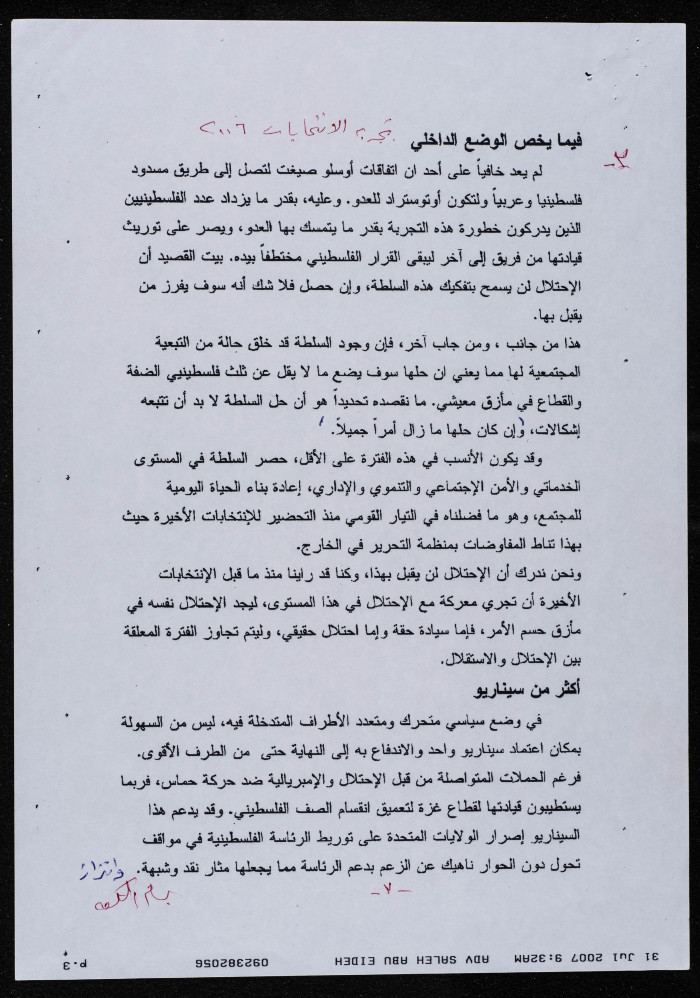 تجربة الانتخابات ٢٠٠٦
-٣
فيما يخص الوضع الداخلي
لم يعد خافياً على أحد ان اتفاقات أوسلو صيغت لتصل إلى طريق مسدود
فلسطينيا وعربياً ولتكون أوتوستراد للعدو. وعليه، بقدر ما يزداد عدد الفلسطينيين
الذين يدركون خطورة هذه التجربة بقدر ما يتمسك بها العدو، ويصر على توريث
قيادتها من فريق إلى آخر ليبقى القرار الفلسطيني مختطفاً بيده. بيت القصيد أن
الإحتلال لن يسمح بتفكيك هذه السلطة، وإن حصل فلا شك أنه سوف يفرز من
يقبل بها.
هذا من جانب ، ومن جاب آخر، فإن وجود السلطة قد خلق حالة من التبعية
المجتمعية لها مما يعني ان حلها سوف يضع ما لا يقل عن ثلث فلسطينيي الضفة
والقطاع في مأزق معيشي. ما نقصده تحديداً هو أن حل السلطة لا بد أن تتبعه
إشكالات، (وإن كان حلها ما زال أمراً جميلاً.)
وقد يكون الأنسب في هذه الفترة على الأقل، حصر السلطة في المستوى
الخدماتي والأمن الإجتماعي والتنموي والإداري، إعادة بناء الحياة اليومية
للمجتمع، وهو ما فضلناه في التيار القومي منذ التحضير للإنتخابات الأخيرة حيث
بهذا تناط المفاوضات بمنظمة التحرير في الخارج.
ونحن ندرك أن الإحتلال لن يقبل بهذا، وكنا قد راينا منذ ما قبل الإنتخابات
الأخيرة أن تجري معركة مع الإحتلال في هذا المستوى، ليجد الإحتلال نفسه في
مأزق حسم الأمر، فإما سيادة حقة وإما احتلال حقيقي، وليتم تجاوز الفترة المعلقة
بين الإحتلال والاستقلال.
أكثر من سيناريو
في وضع سياسي متحرك ومتعدد الأطراف المتدخلة فيه، ليس من السهولة
بمكان اعتماد سيناريو واحد والاندفاع به إلى النهاية حتى من الطرف الأقوى.
فرغم الحملات المتواصلة من قبل الإحتلال والإمبريالية ضد حركة حماس، فربما
يستطيبون قيادتها لقطاع غزة لتعميق انقسام الصف الفلسطيني. وقد يدعم هذا
السيناريو إصرار الولايات المتحدة على توريط الرئاسة الفلسطينية في مواقف
تحول دون الحوار ناهيك عن الزعم بدعم الرئاسة مما يجعلها مثار نقد وشبهة.
-٧-
31 Jul 2007 9:32AM ADV SALEH ABU EIDEH 092382056 P.3